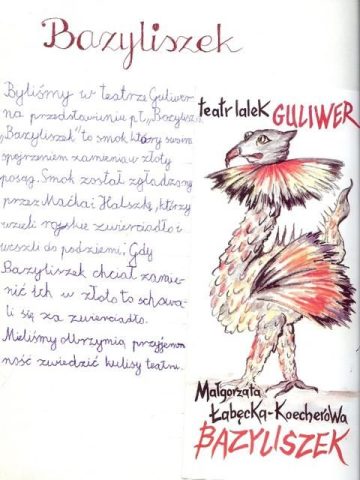 Bazyliszek
Byliśmy w teatrze Guliwer
na przedstawieniu pt. "Bazyliszek"
"Bazyliszek" to smok który swoim
spojrzeniem zamienia w złoty
posąg. Smok został zgładzony
przez Maćka i Halszkę, którzy
wzieli zwierciadło i
weszli do podziemi. Gdy
Bazyliszek chciał zamie-
nić ich w złoto to schowa-
li się za zwierciadło.
Mieliśmy olbrzymią przyjemn
ność zwiedzić kulisy teatru.
teatr lalek GULIWER
Małgorzata
Łabęcka-Koecherowa
BAZYLISZEK